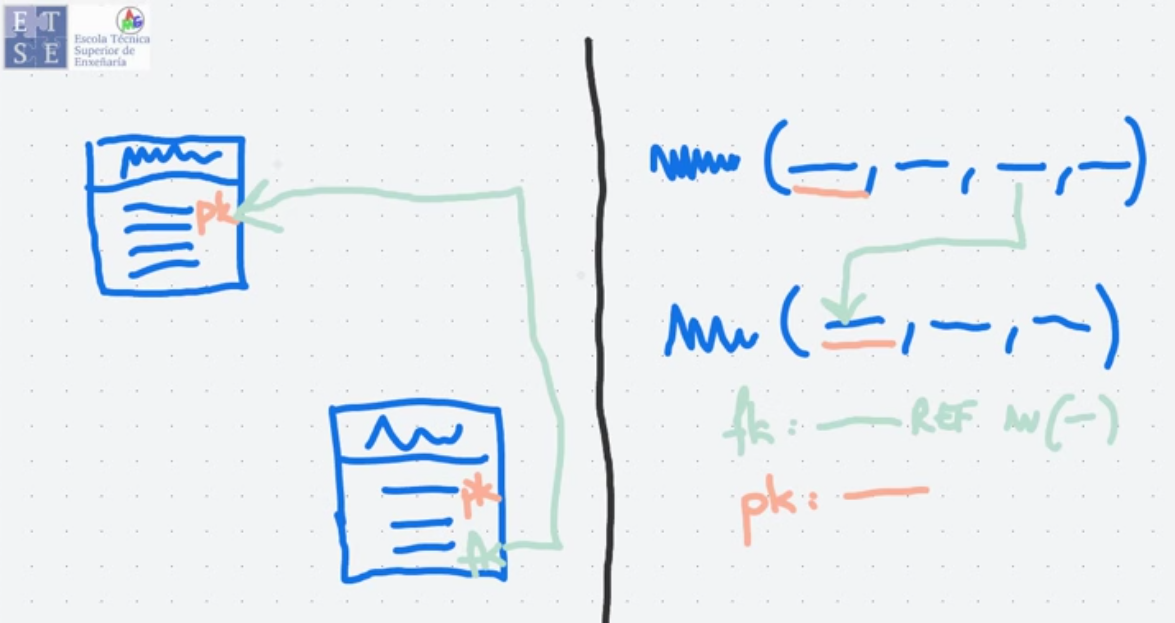 E T
S E
Escola Técnica
Superior de
Enxeñaría
pk
pk
fk
fk: REF (-)
pk: